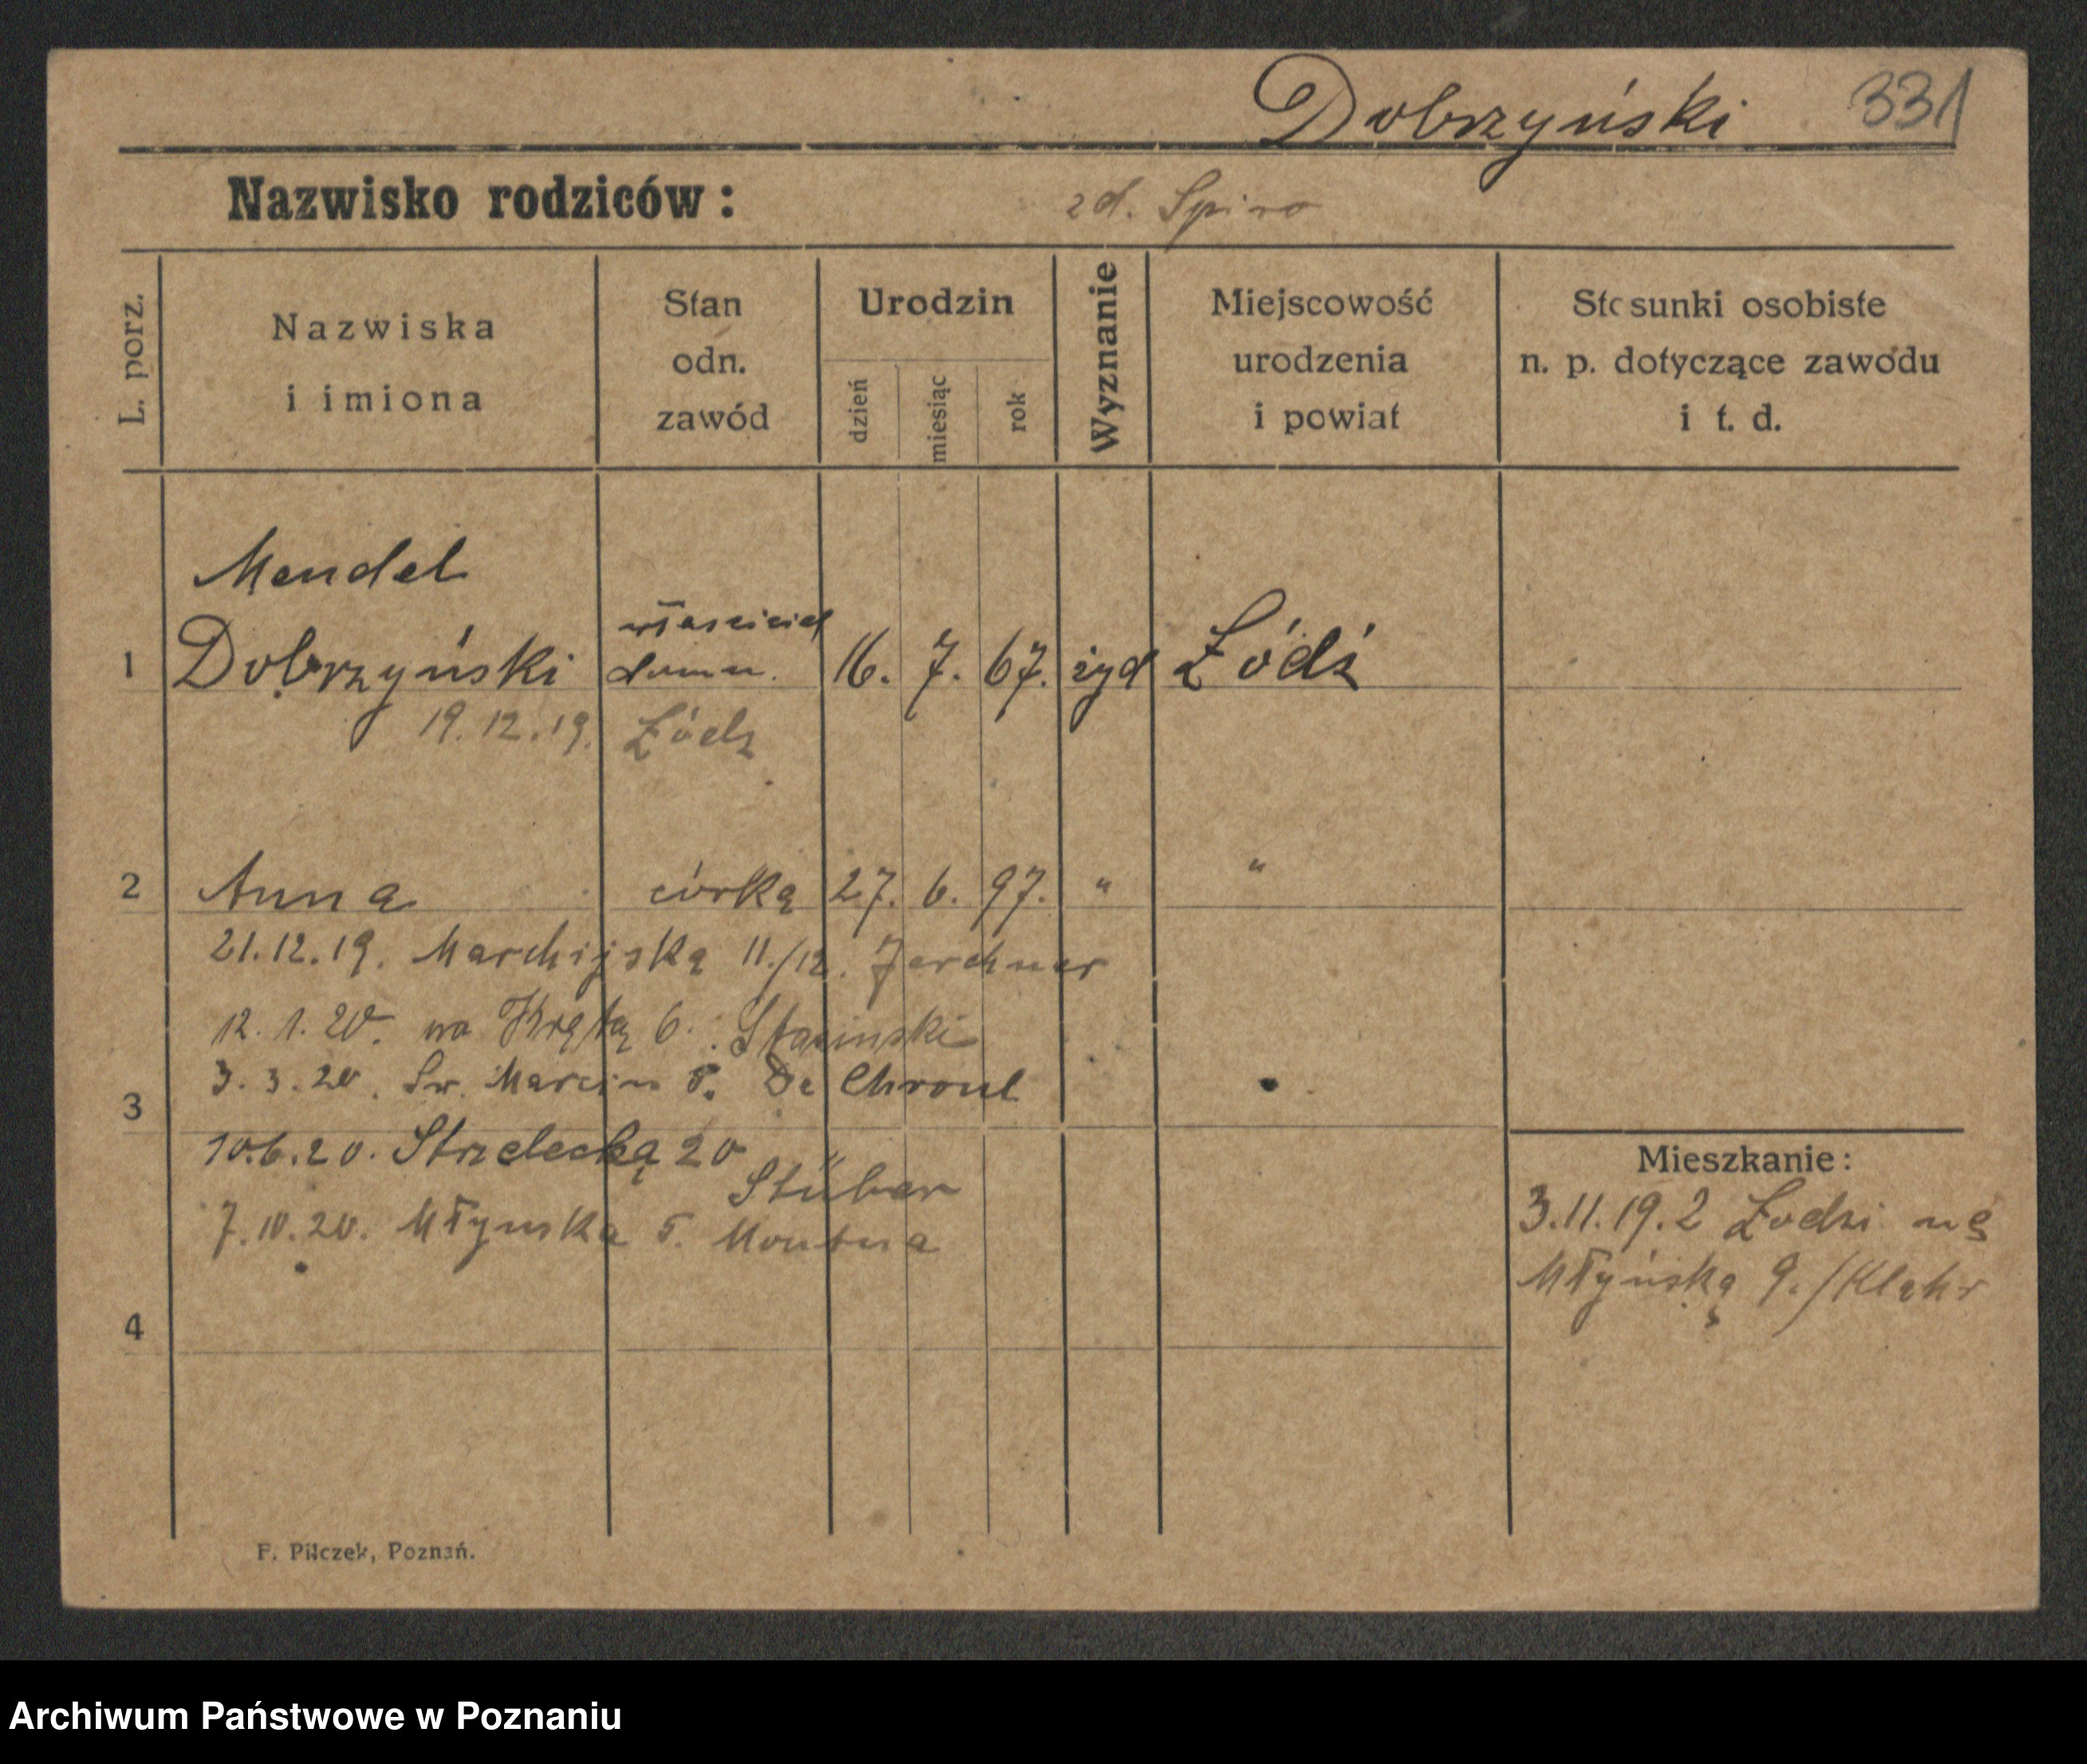 Dobrzyński 331
Nazwisko rodziców: zd. Spiro
L. porz.
Nazwiska
i imiona
Stan
odn.
zawód
Urodzin
dzień
miesiąc
rok
Wyznanie
Miejscowość
urodzenia
i powiat
Stosunki osobiste
n. p. dotyczące zawodu
i t. d.
Mendel
właściciel
1 Dobrzyński domu. 16. 7. 67. żyd Łódź
19.12.19. Łódz
2 Anna córka 27. 6. 97. " "
21.12.19. 11./12.
12.1.20. na Krętą 6. Stasinski
3.3.20. Św. Marcin
3
10.6.20. Strzelecką 20
Stüber
7.10.20. Młyńska
Mieszkanie:
3.11.19. z Łodzi na
Młyńską 9./
4
F. Pilczek, Poznań.
Archiwum Państwowe w Poznaniu